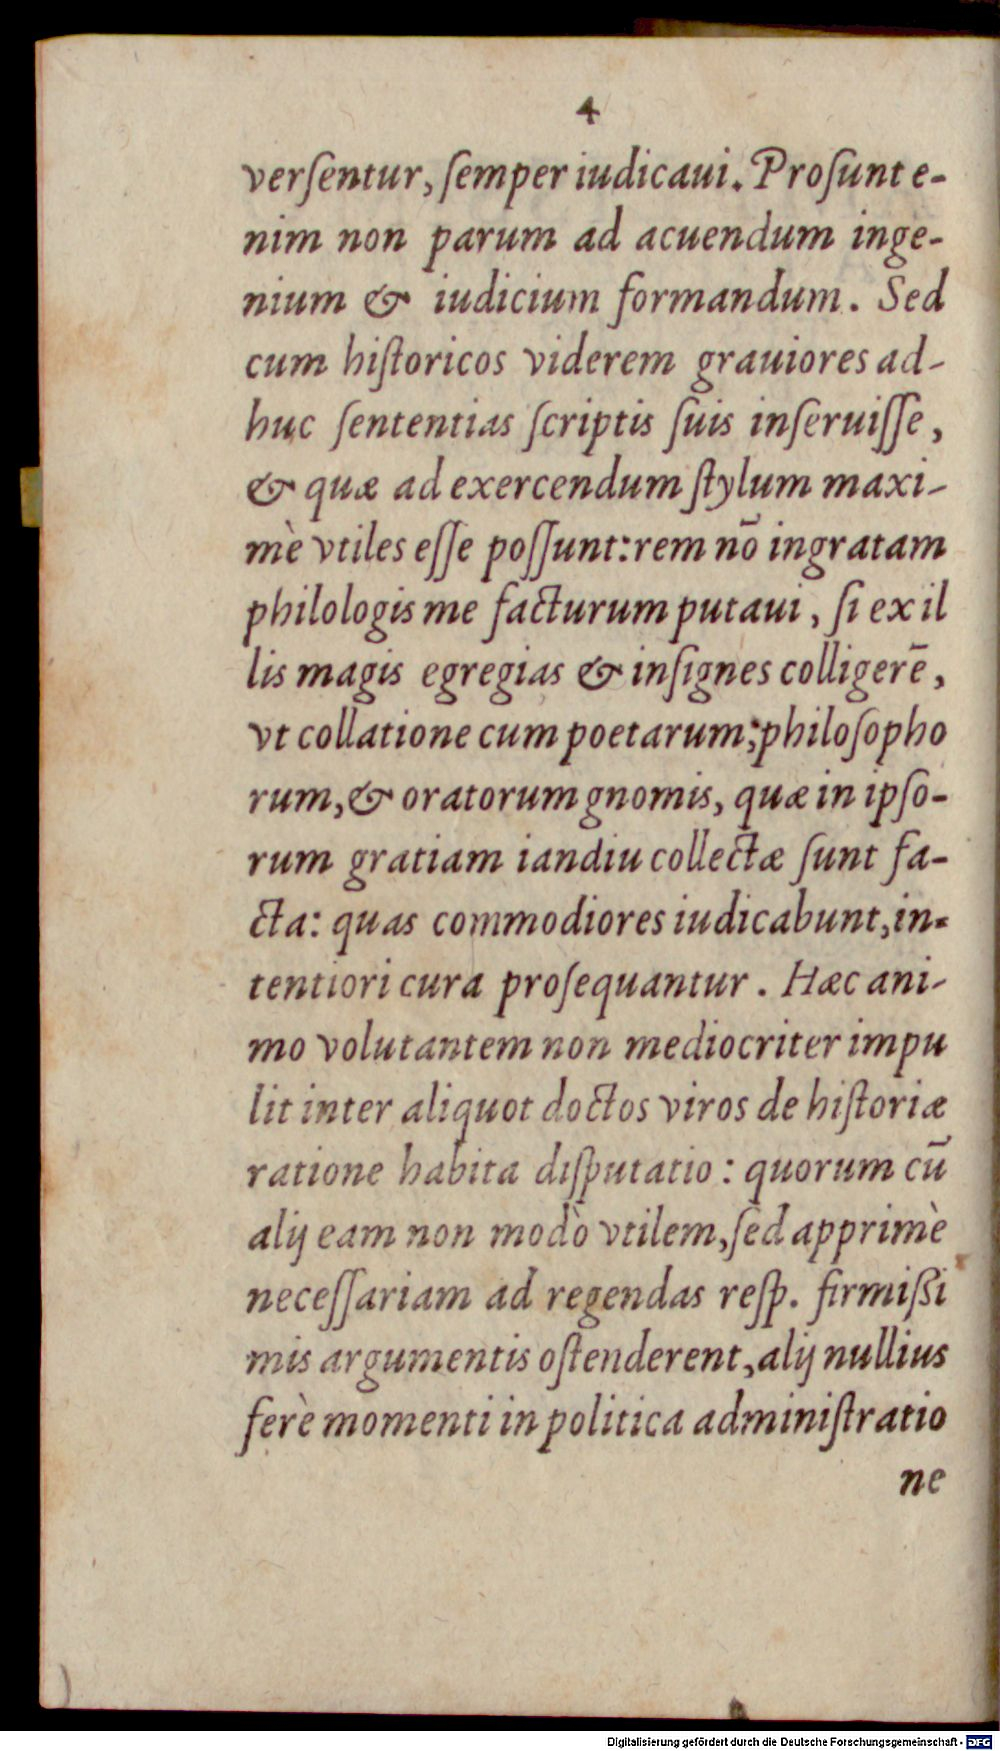 4
verſentur, ſemper iudicaui. Proſunt e-
nim non parum ad acuendum inge-
nium & iudicium formandum. Sed
cum hiſtoricos viderem grauiores ad-
huc ſententias ſcriptis ſuis inſeruiſſe,
& quæ ad exercendum ſtylum maxi-
mè vtiles eſſe poſſunt: rem nō ingratam
philologis me facturum putaui, ſi ex il
lis magis egregias & inſignes colligerē,
vt collatione cum poetarum, philoſopho
rum, & oratorum gnomis, quæ in ipſo-
rum gratiam iandiu collectæ ſunt fa-
cta: quas commodiores iudicabunt, in-
tentiori cura proſequantur. Hæc ani-
mo volutantem non mediocriter impu
lit inter aliquot doctos viros de hiſtoriæ
ratione habita diſputatio: quorum cū
alij eam non modò vtilem, ſed apprimè
neceſſariam ad regendas reſp. firmißi
mis argumentis oſtenderent, alij nullius
ferè momenti in politica adminiſtratio
ne
Digitalisierung gefördert durch die Deutsche Forschungsgemeinschaft - DFG